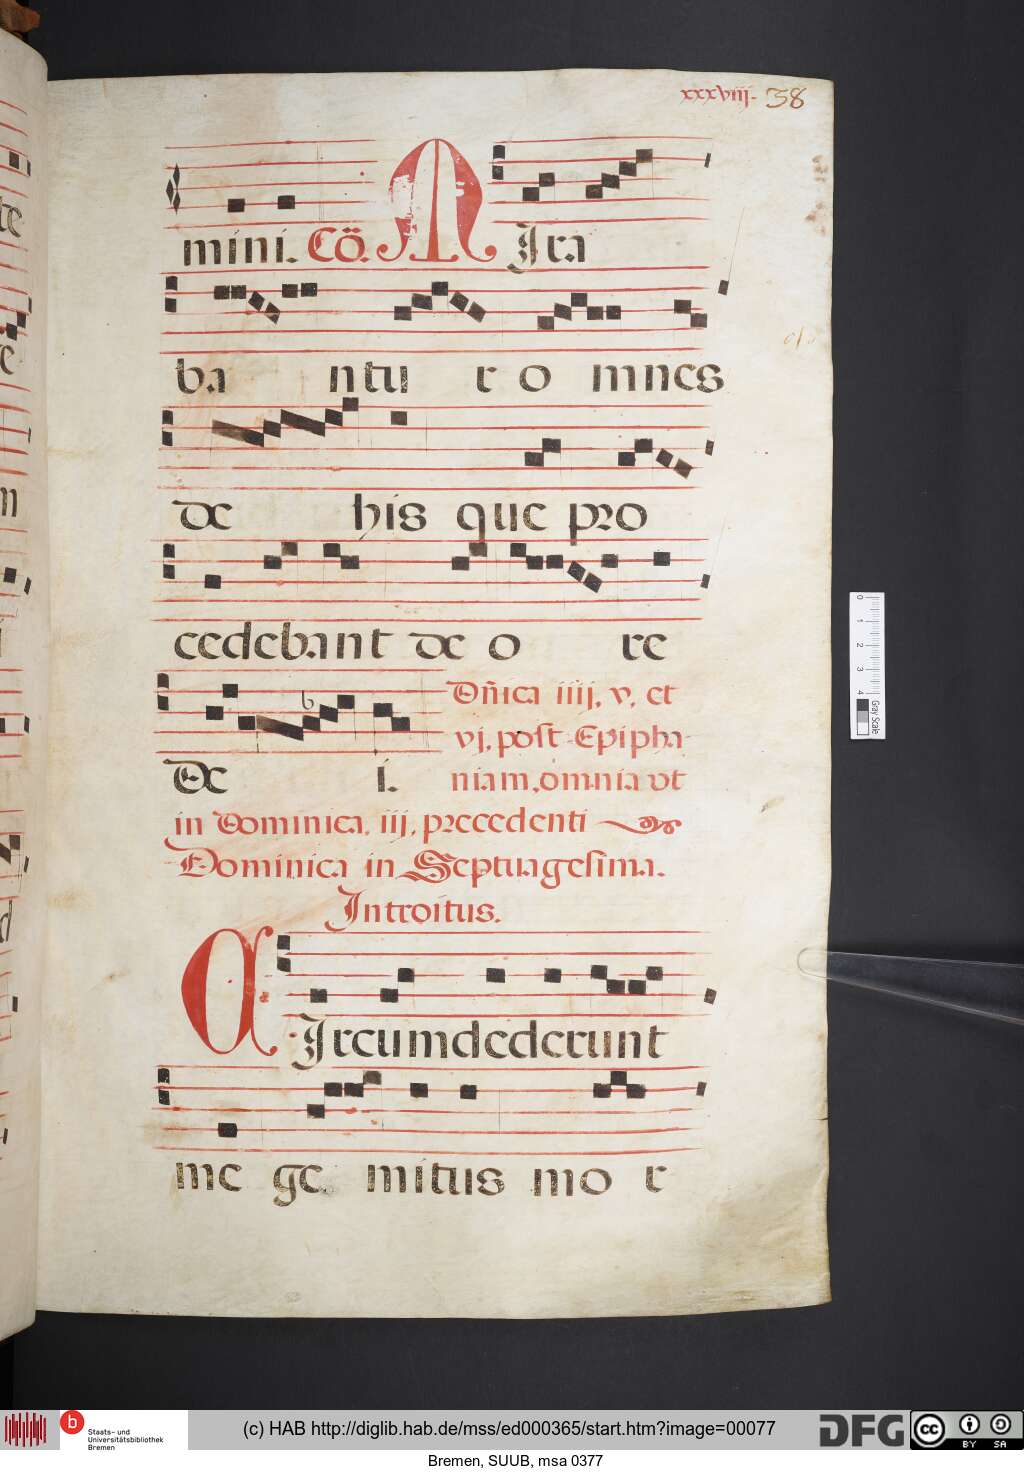 xxxviij. 38
mini. Cõ. M Ira
ba ntu r o mnes
de his que pro
cedebant de o re
De i.
Dñica iiij. v. et
vj. post Epipha
niam, omnia vt
in Dominica. iij. precedenti
Dominica in Septuagesima.
Introitus.
C Ircumdederunt
me ge mitus mo r
0 1 2 3 4 Gray Scale
b Staats- und
Universitätsbibliothek
Bremen
(c) HAB http://diglib.hab.de/mss/ed000365/start.htm?image=00077
DFG
cc BY SA
Bremen, SUUB, msa 0377